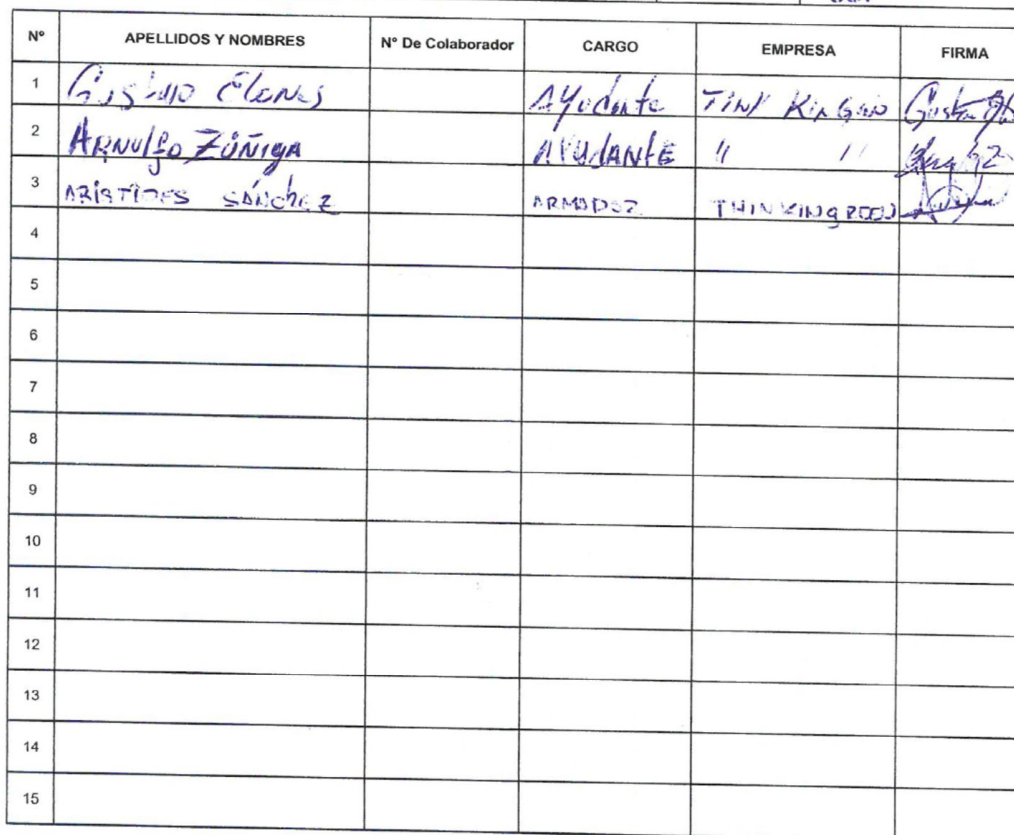 Nº APELLIDOS Y NOMBRES Nº De Colaborador CARGO EMPRESA FIRMA
1 Gustavo Elenes Ayudante TINY KinGuin
2 ARNulfo ZÚÑIGA AYUDANTE " "
3 ARISTIDES SÁNCHEZ ARMADOR THINKINGREED
4
5
6
7
8
9
10
11
12
13
14
15